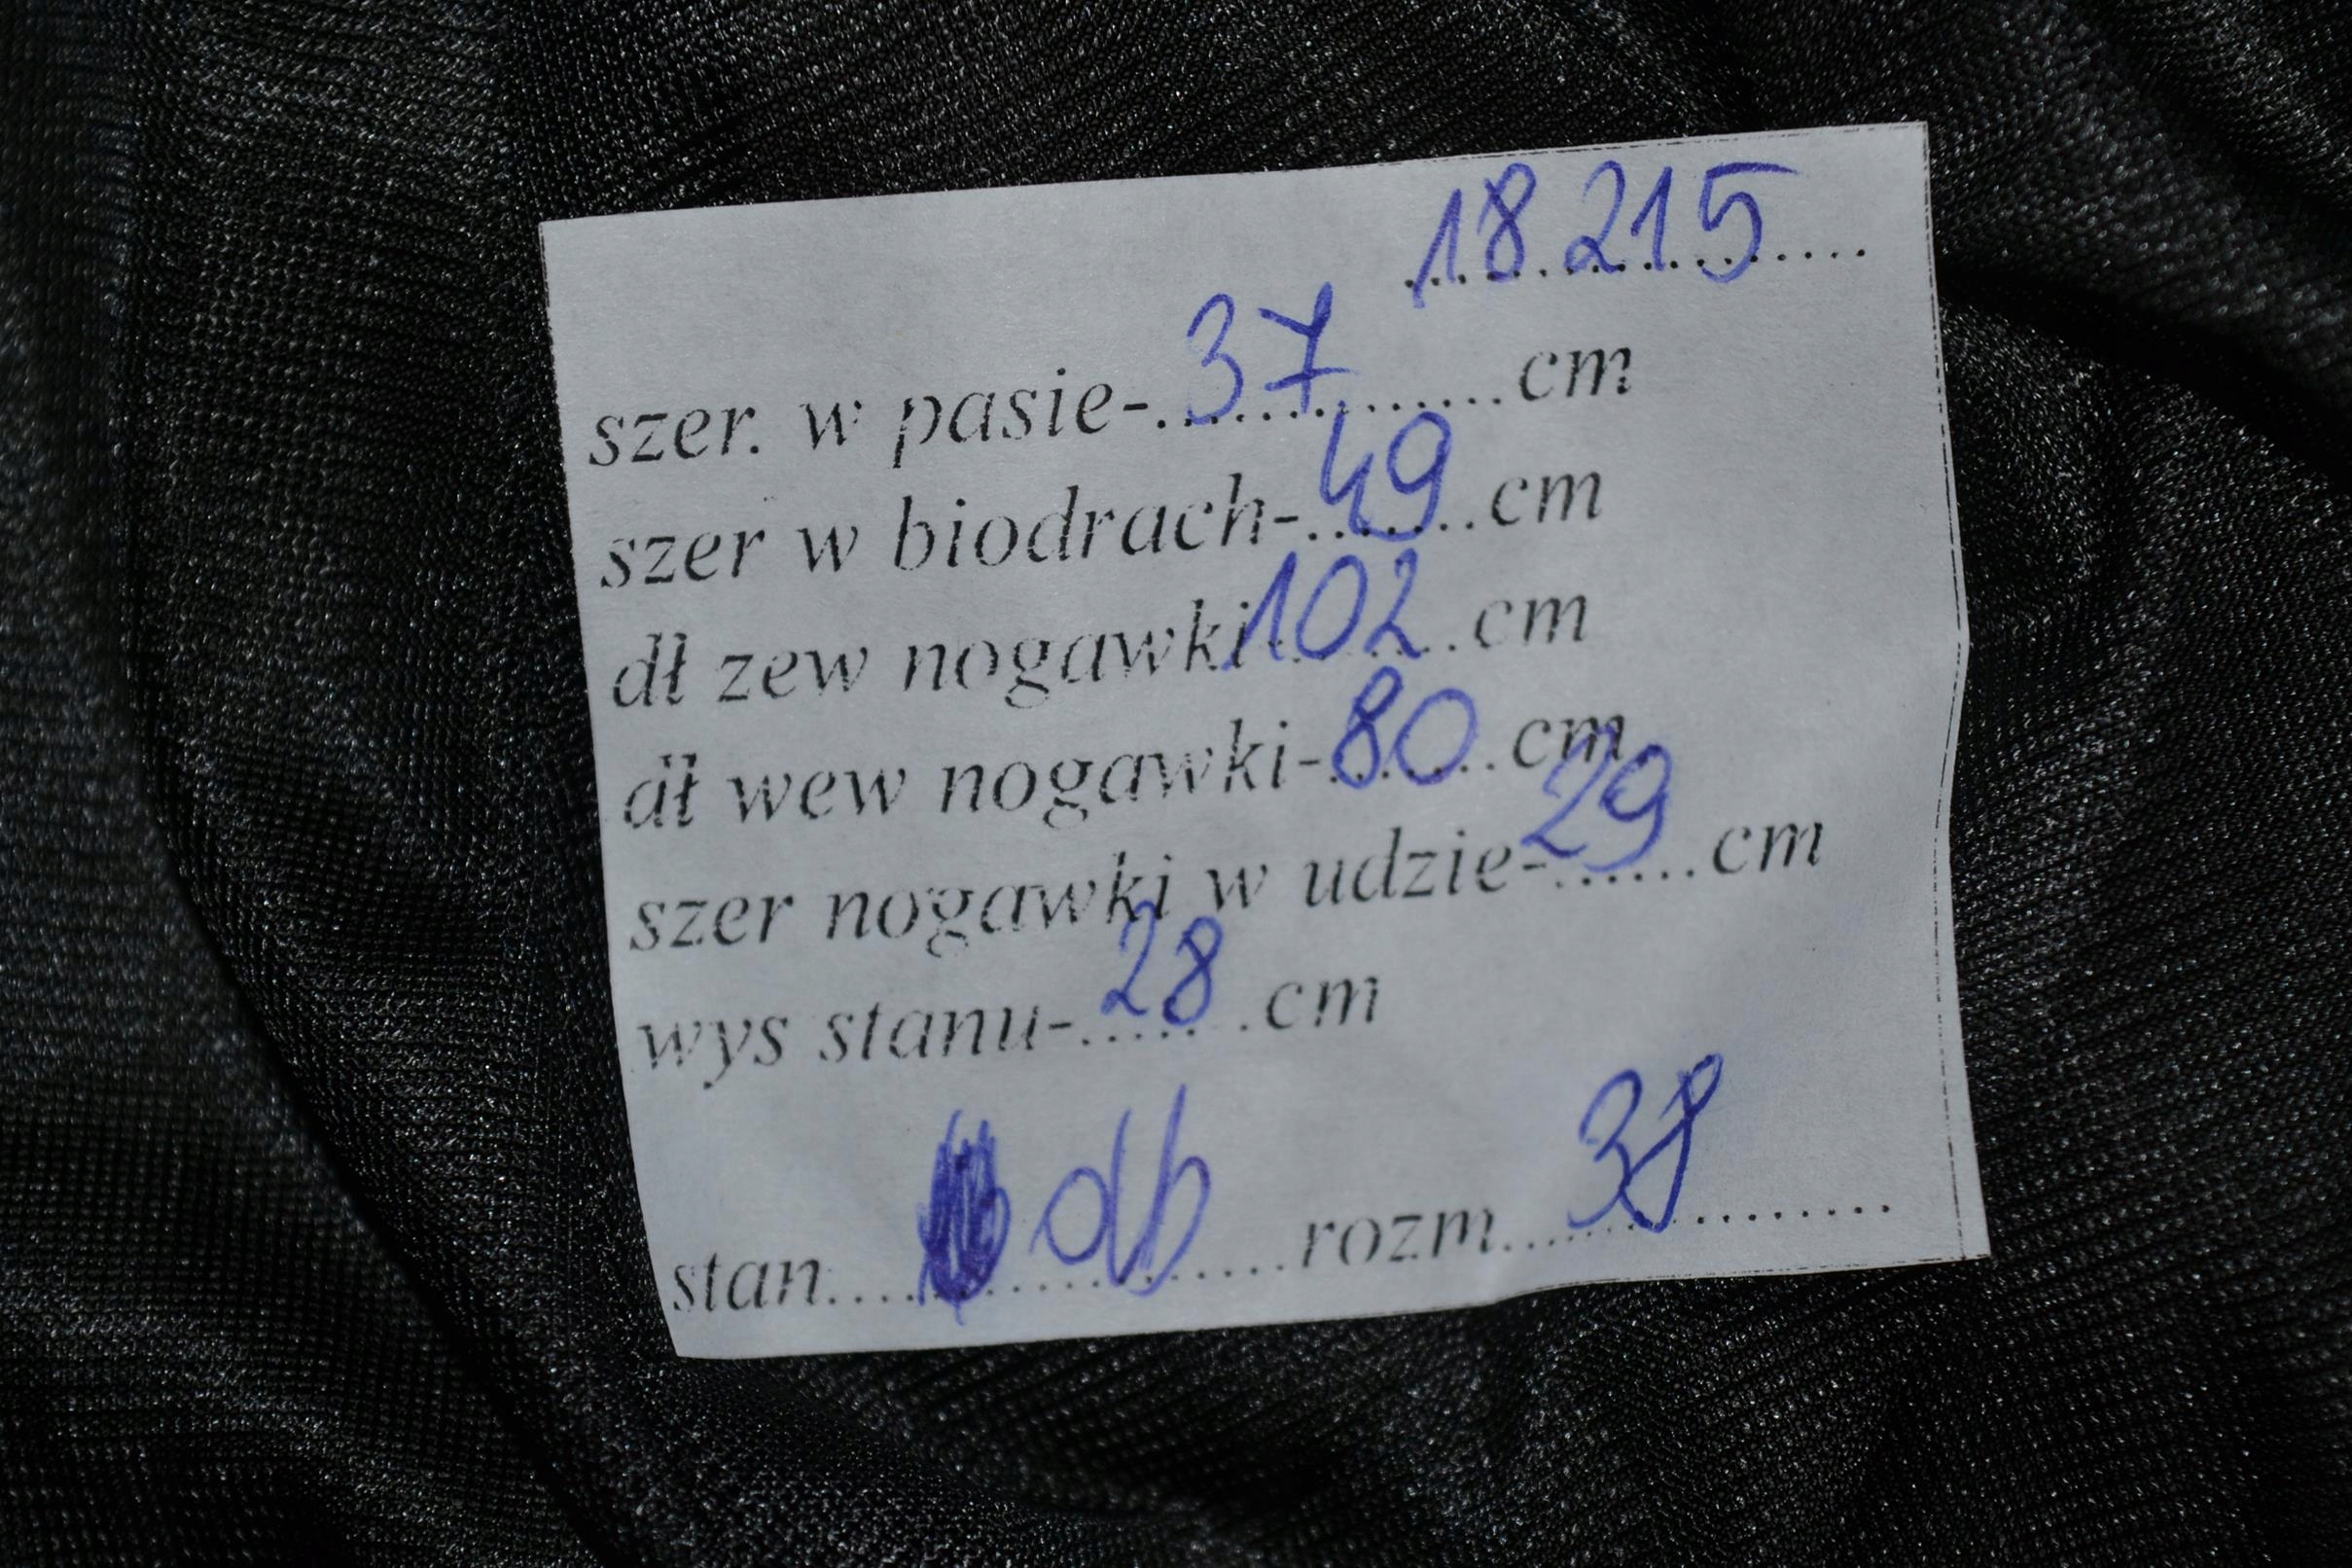 18215
szer. w pasie-37cm
szer w biodrach-49cm
dł zew nogawki-102cm
dł wew nogawki-80cm
szer nogawki w udzie-29cm
wys stanu-28cm
stan....db....rozm....38....